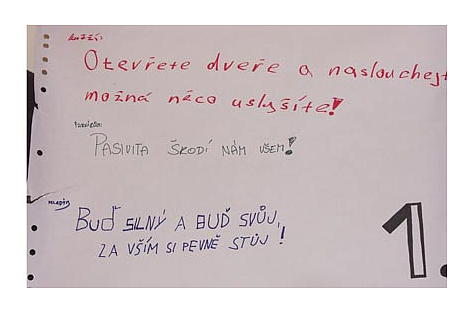 Otevřete dveře a naslouchejt
možná něco uslyšíte!
PASIVITA ŠKODÍ NÁM VŠEM!
MLADÝM
BUĎ SILNÝ A BUĎ SVŮJ,
ZA VŠÍM SI PEVNĚ STŮJ!
1.